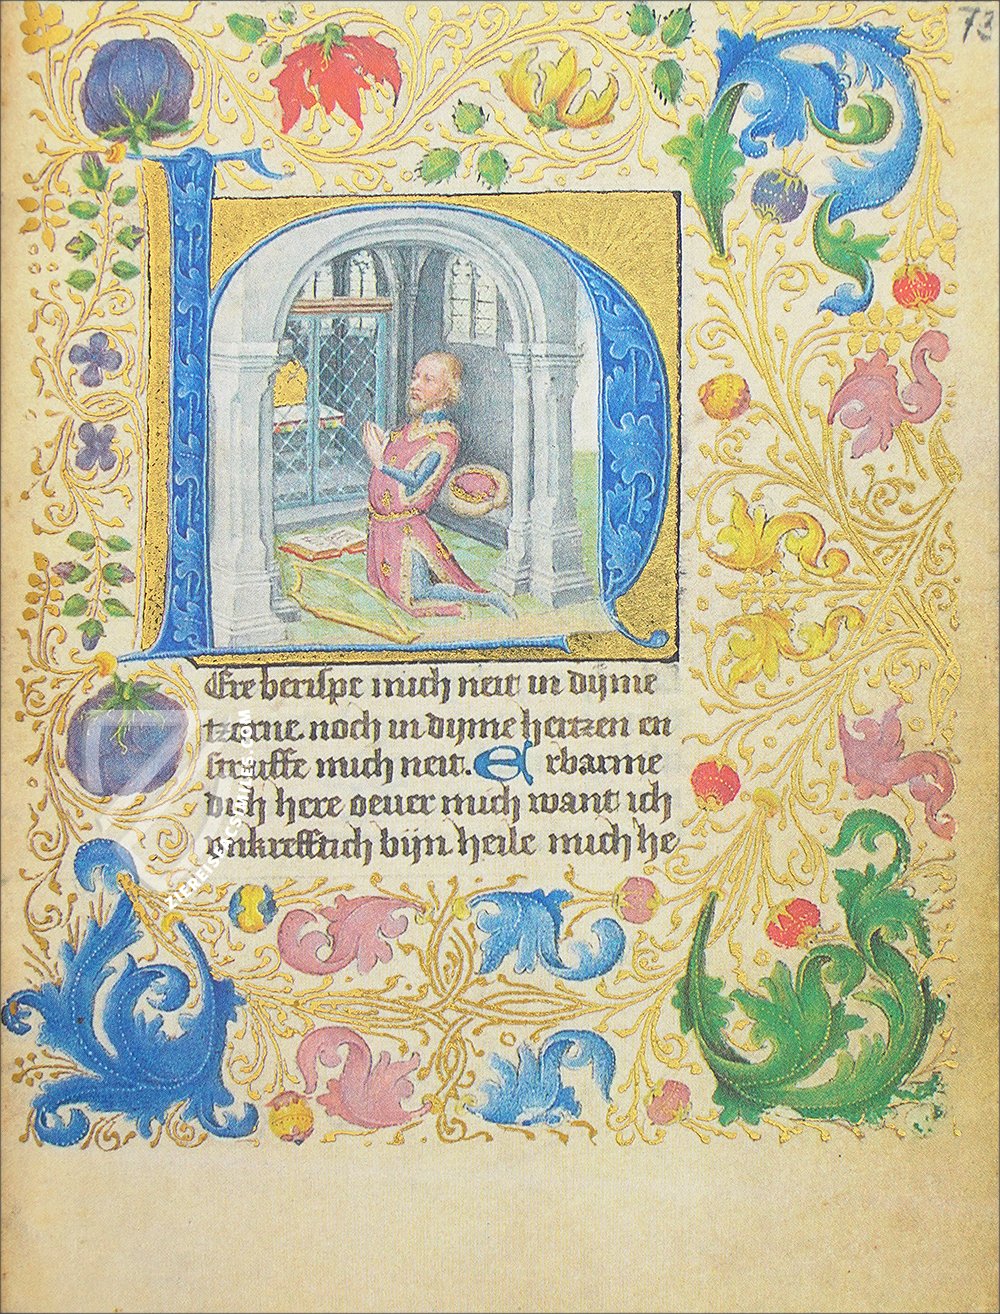 73
HEre berispe mich neit in dijme
tzorne. noch in dijme hertzen en
straiffe mich neit. Erbarme
dich here oeuer mich want ich
onkrefftich bijn heile mich he
ZIEREIS-FACSIMILES.COM